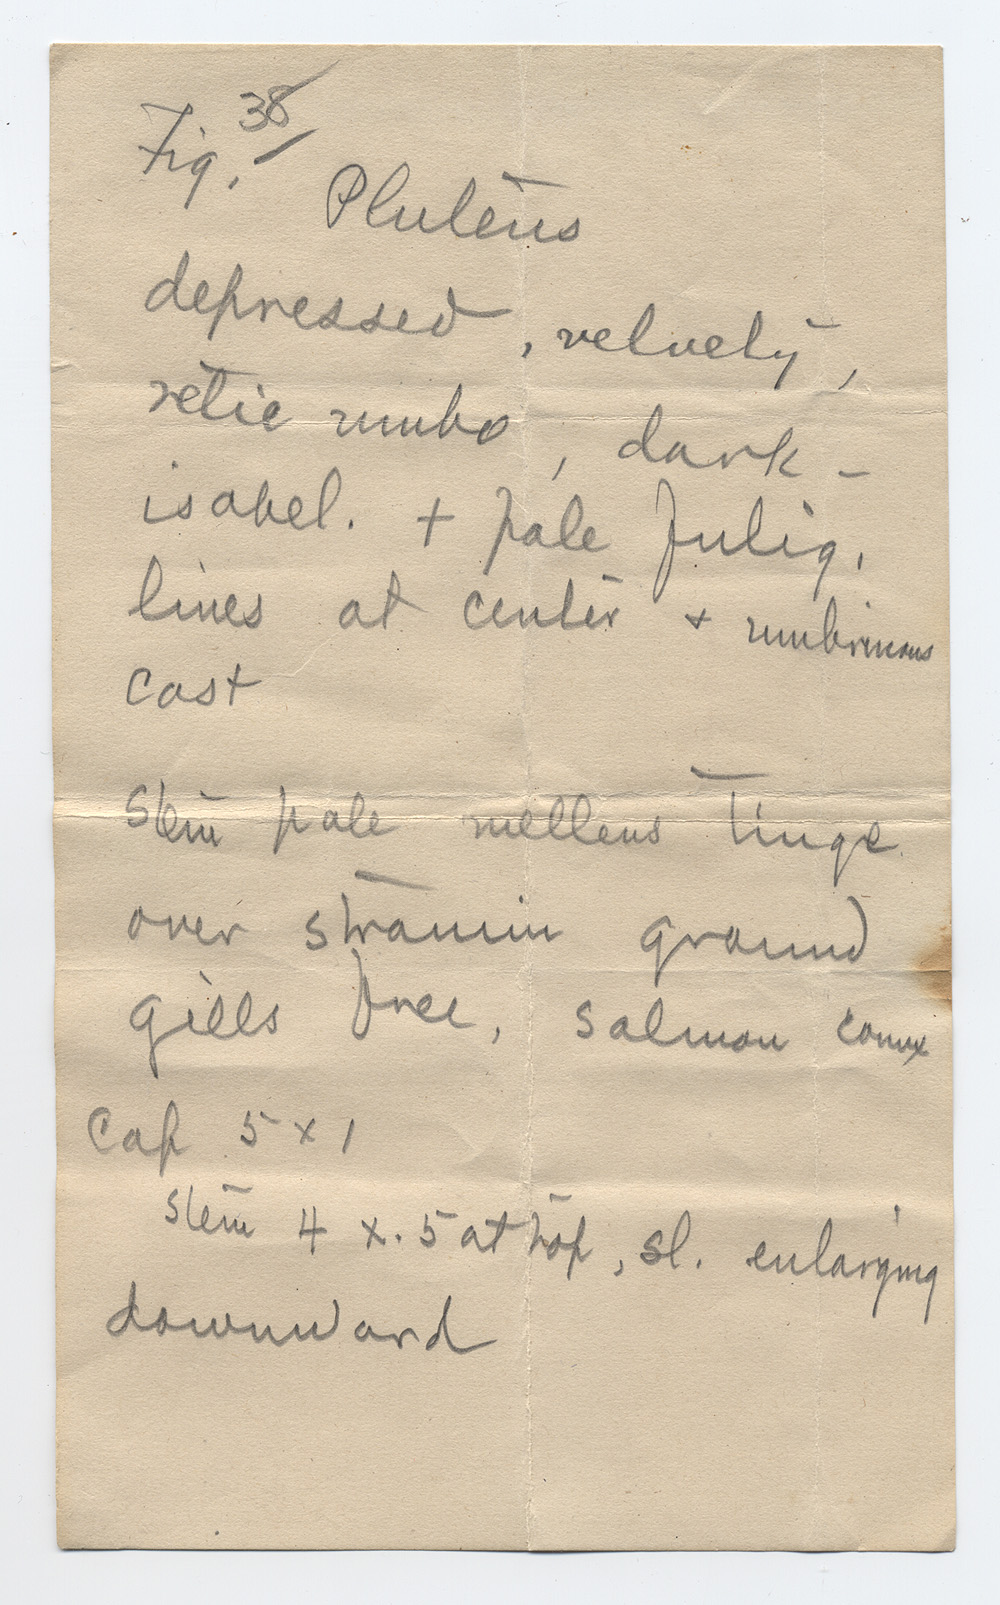 Fig. 38
Pluteus
depressed, velvety,
retic umbo, dark-
isabel. + pale fulig.
lines at center + umbrinous
cast
Stem pale melleus tinge
over stramin ground
gills free, salmon convex
Cap 5 x 1
stem 4 x .5 at top, sl. enlarging
downward